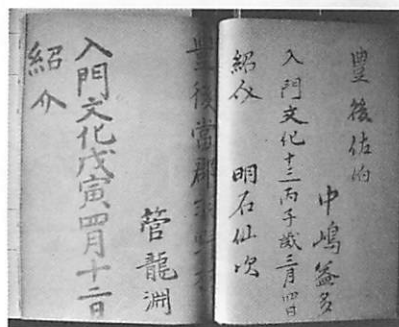 豊後佐伯
中嶋益多
入門文化十三丙子歳三月四日
紹介 明石仙次
豊後當郡
管龍淵
入門文化戊寅四月十二日
紹介